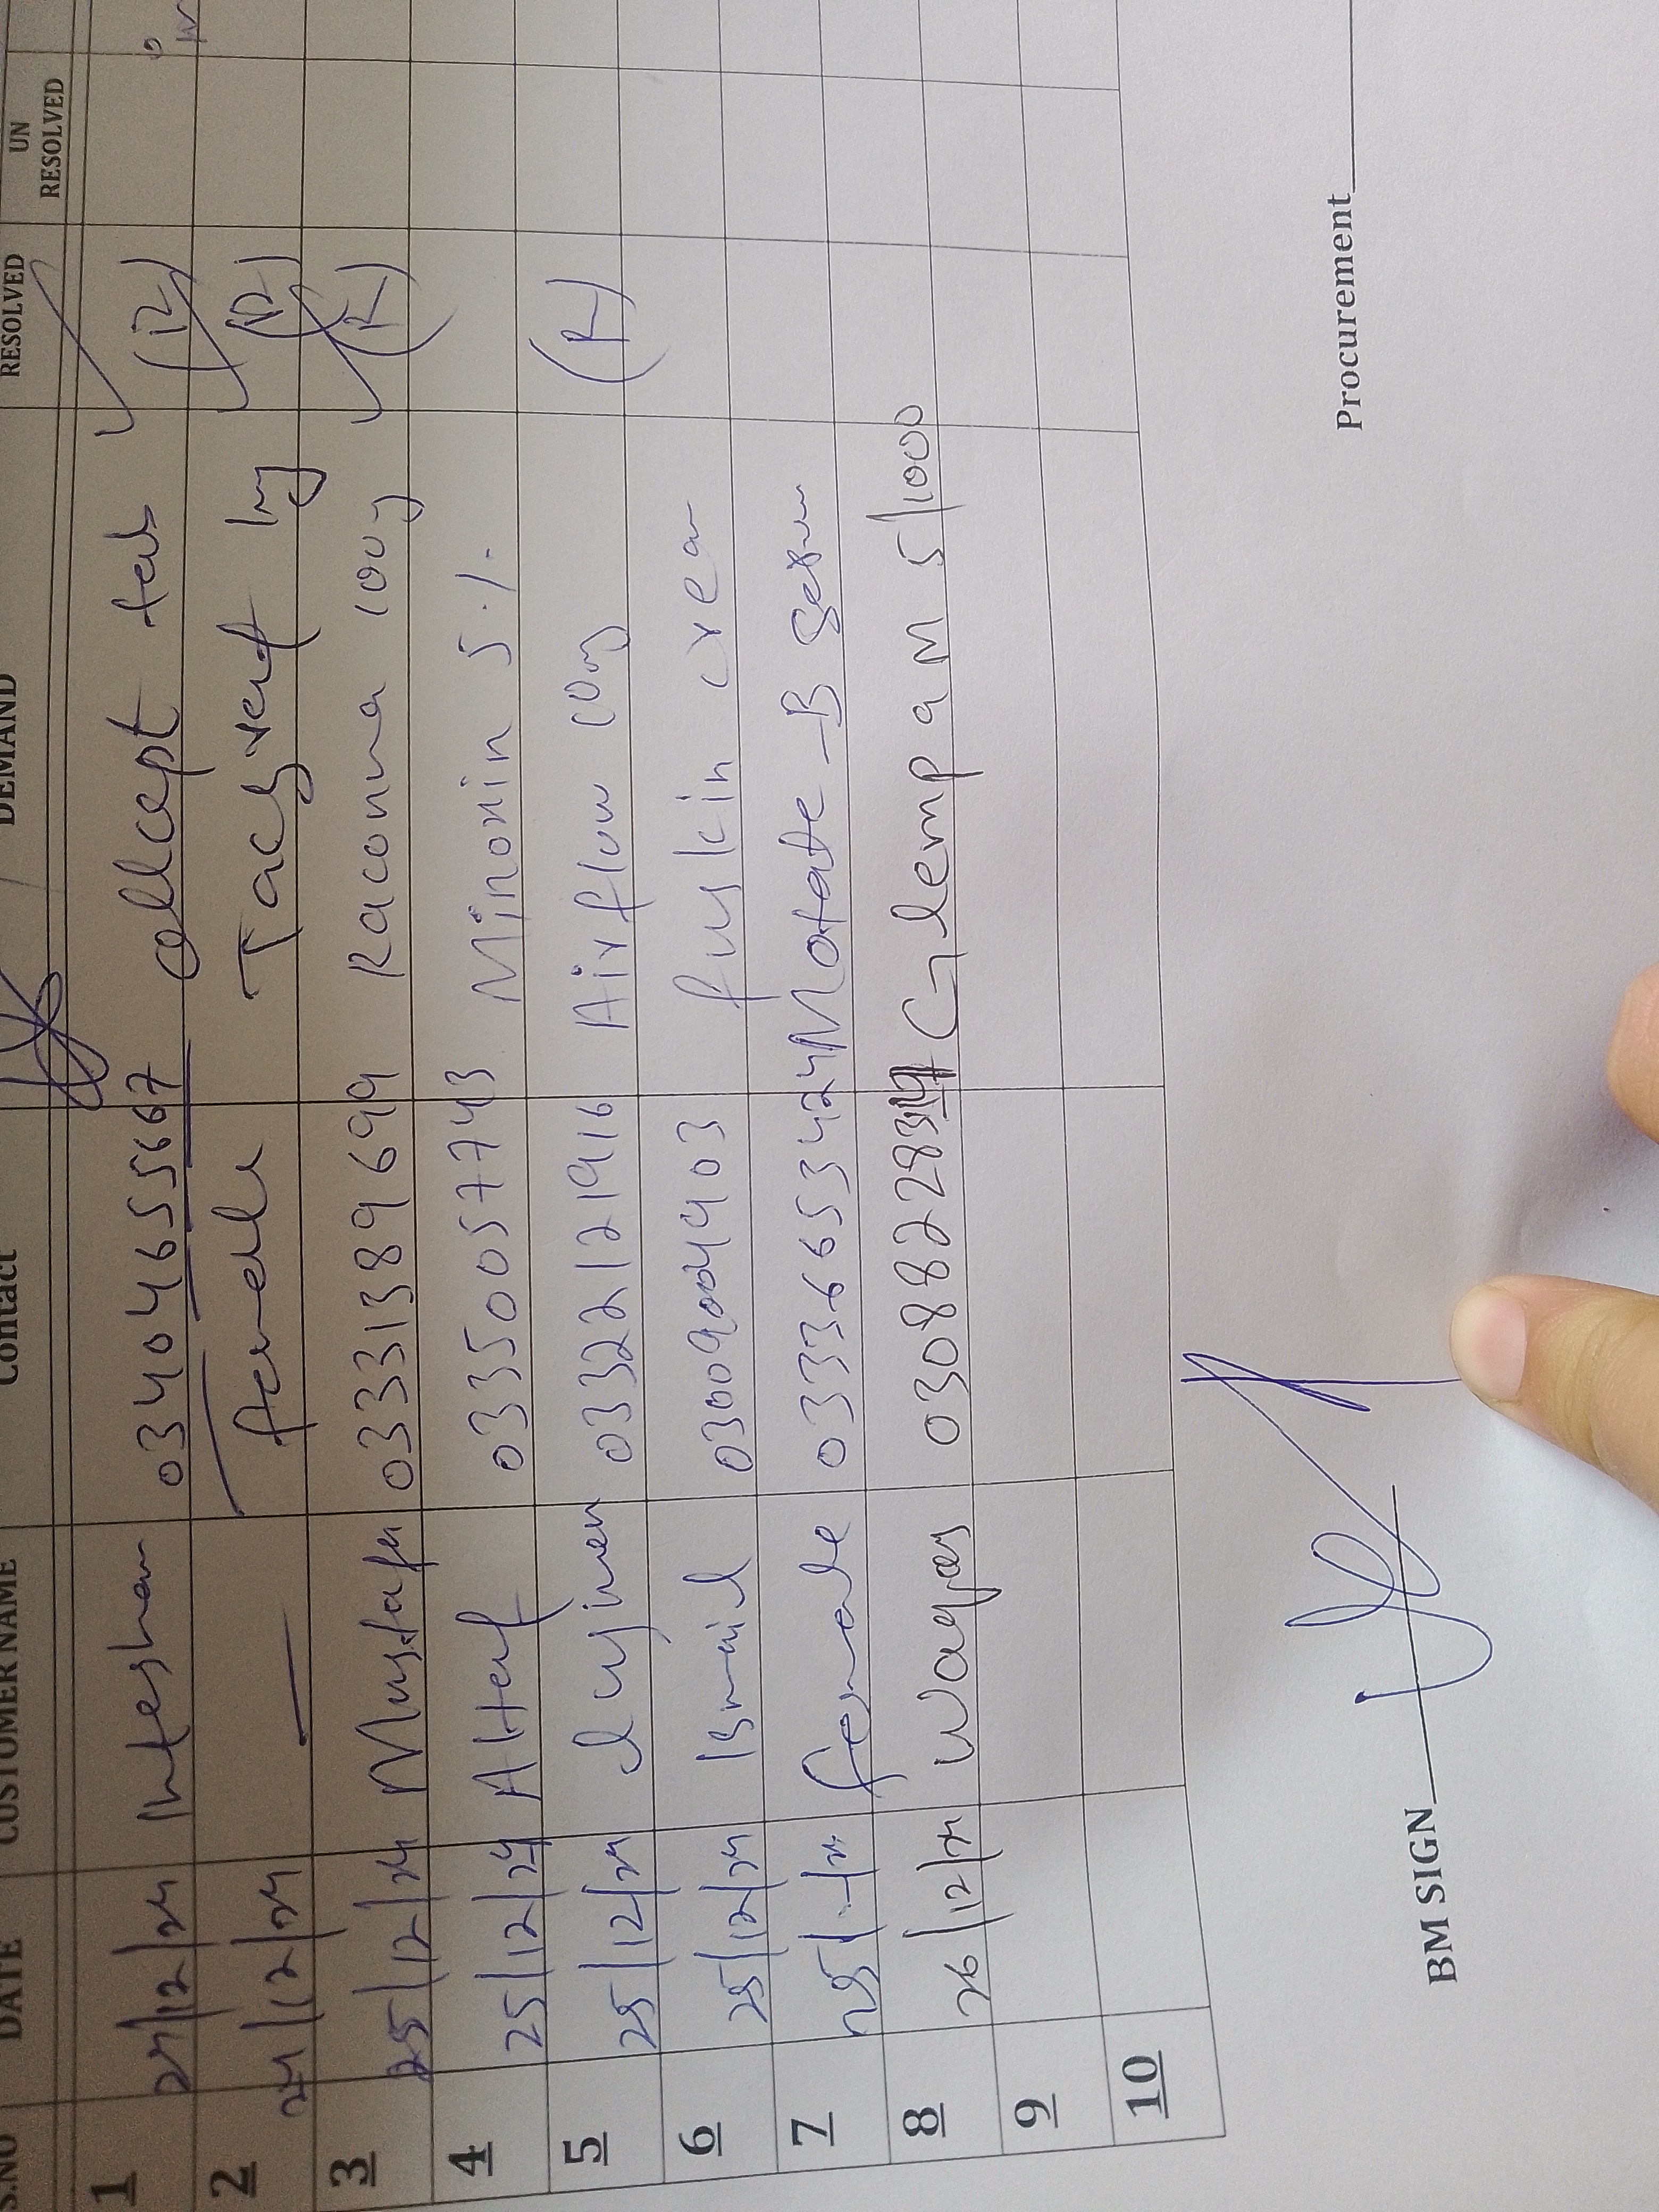 S.NO DATE CUSTOMER NAME Contact DEMAND RESOLVED UN RESOLVED
1 24/12/24 Intesham 03404655667 cellcept tab (R)
2 24/12/24 — female Tacgraf 1mg (R)
3 25/12/24 Mustafa 03331389699 Raconna 100g (R)
4 25/12/24 Altaf 03350057743 Minoxin 5%
5 25/12/24 03322121916 Airflow 10mg (R)
6 25/12/24 Ismail 03009004403 fuskin cream
7 25/-/24 female 03336653424 Motate-B Serum
8 26/12/24 Waqas Glempa M 5/1000
9
10
BM SIGN Procurement